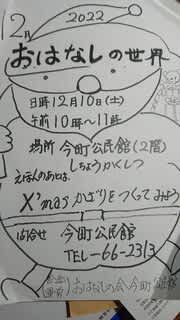 12月 2022
おはなしの世界
日時 12月10日(土)
午前10時〜11時
場所 今町公民館(2階)
しちょうかくしつ
えほんのあとは、
X'masかざりをつくってみよう
問合せ 今町公民館
TEL-66-2313
おはなしの会 今町